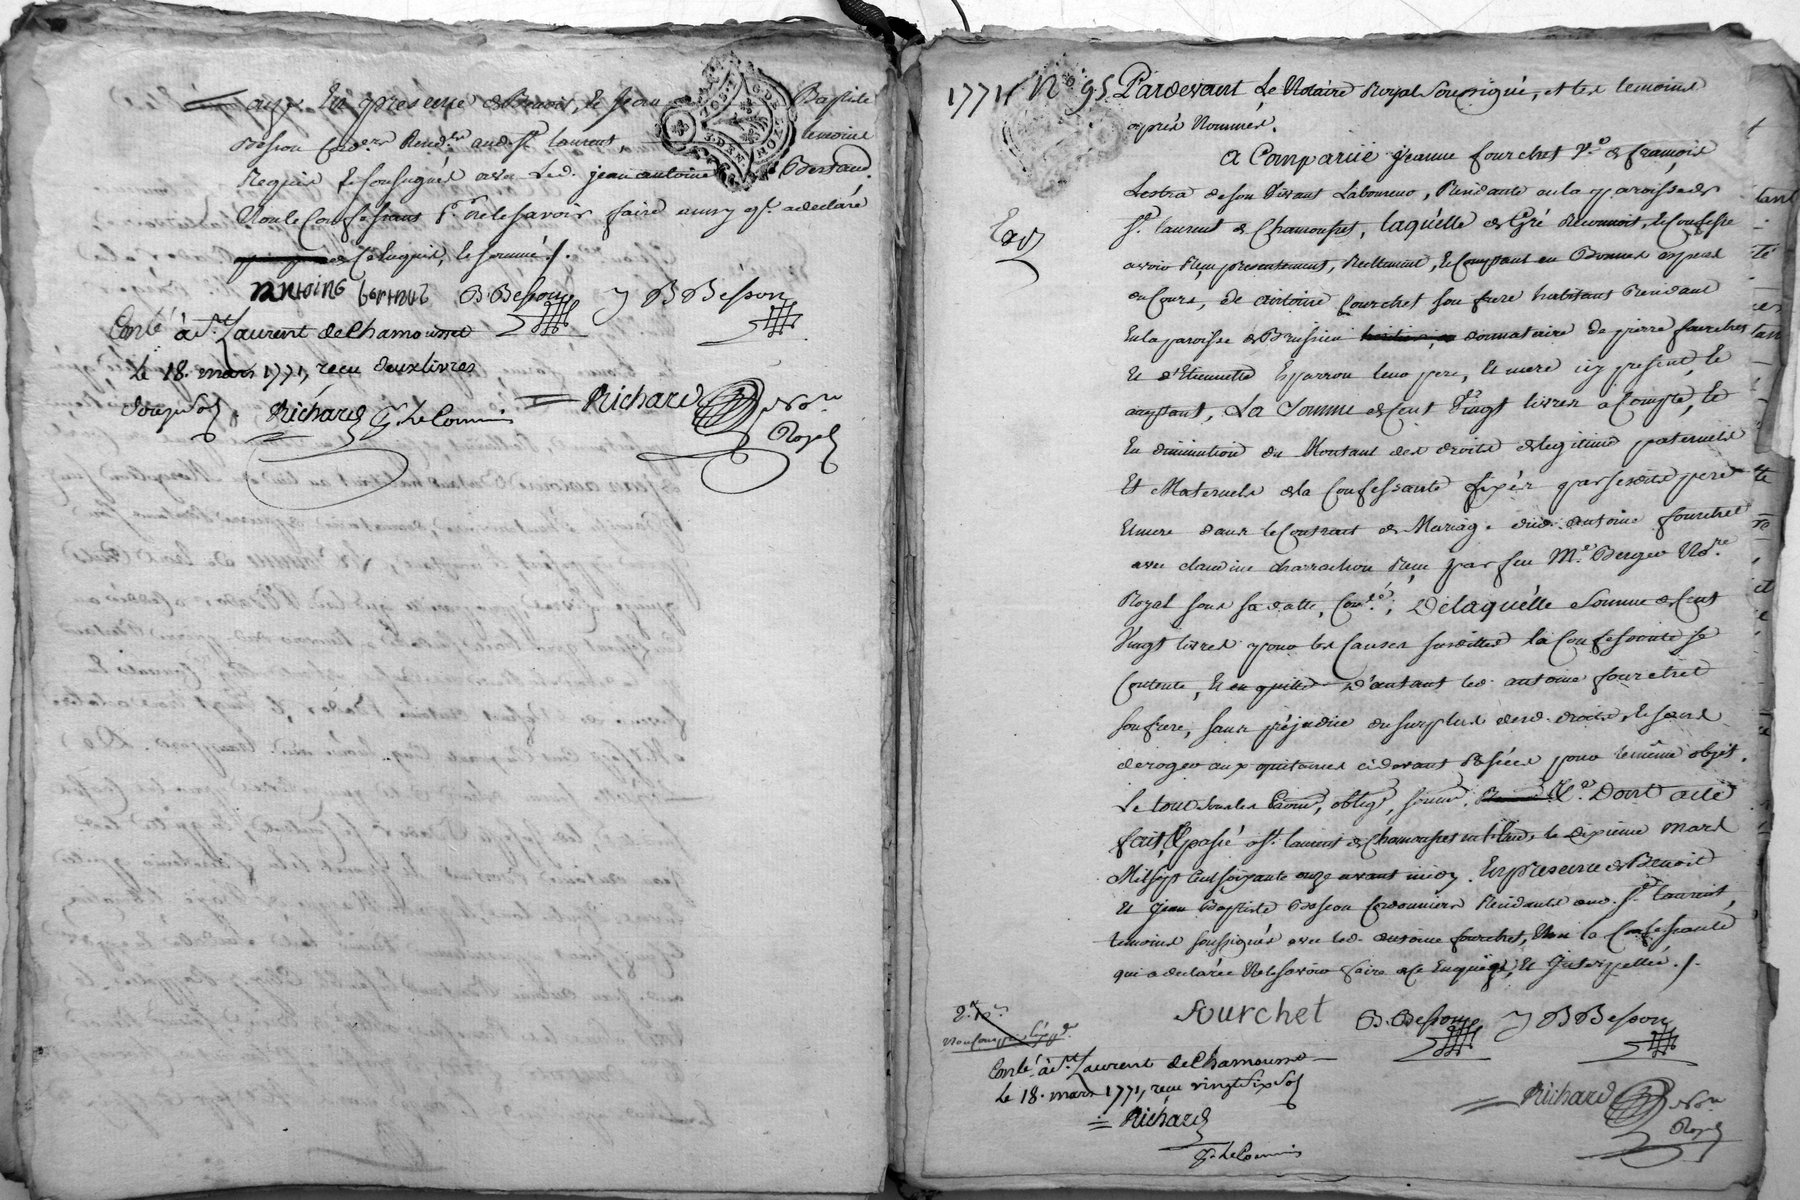 onze En presence de Benoit, et Jean Baptiste
Besson Cord.ers Resid.ts aud. St. laurent, temoins
Requis et soussignés avec led. jean antoine Bertaud.
Non le Confessant p.r ne le savoir faire ainsy qu'il a declaré
de ce Enquis, et sommé ./.
B. Besson J B Besson
Conlé à St. Laurent de Chamousset
le 18. mars 1771, recu deux livres
douze sols Richard p. le Commis
Richard no.re
Royal
1771 No. 95. Pardevant Le Notaire Royal Soussigné, et les temoins
après Nommés.
A Comparüe Jeanne fourchet V.e de françois
de son Vivant Laboureur, Residante en la paroisse de
St. laurent de Chamousset, laquelle de Gré Reconnoit, et Confesse
avoir Reçu presentement, Reellement, et Comptant en Bonnes especes
du Cours, de antoine fourchet son frere habitant Residant
En la paroisse de Brussieu donnataire de pierre fourchet
Et d'Etiennette Esparron leur pere, et mere icy present, et
acceptant, La Somme de Cent Vingt livres a Compte, et
En diminution du Montant des droits de legitime paternels
Et Maternels de la Confessante fixés par sesdits pere
et mere dans le Contrat de Mariage dud. antoine fourchet
avec claudine charrachon Reçu par feu M.e Berger No.re
Royal sous sa datte, Con.lé; De laquelle Somme de Cent
Vingt livres pour les Causes susdittes la Confessante se
Contente, et en quitte d'autant led. antoine fourchet
son frere, sans préjudice du surplus desd. droits, et sans
deroger aux quitances cidevant Passées pour le même objet.
Le tout sous les prom., oblig., soum. &.a Dont acte
fait, et passé a St. laurent de Chamousset en Etude le Dixieme Mars
Mil sept Cent soixante onze avant midy. En presence de Benoit
Et Jean Baptiste Besson Cordonniers Residants aud. St. laurent,
temoins soussignés avec led. antoine fourchet, Non la Confessante
qui a declarée Ne le savoir faire de ce Enquise, et Interpellée ./.
Exp.
fourchet B. Besson J B Besson
Conlé à St. Laurent de Chamousset
le 18. mars 1771, recu vingt six sols
Richard
p. le Commis
Richard no.re
Royal